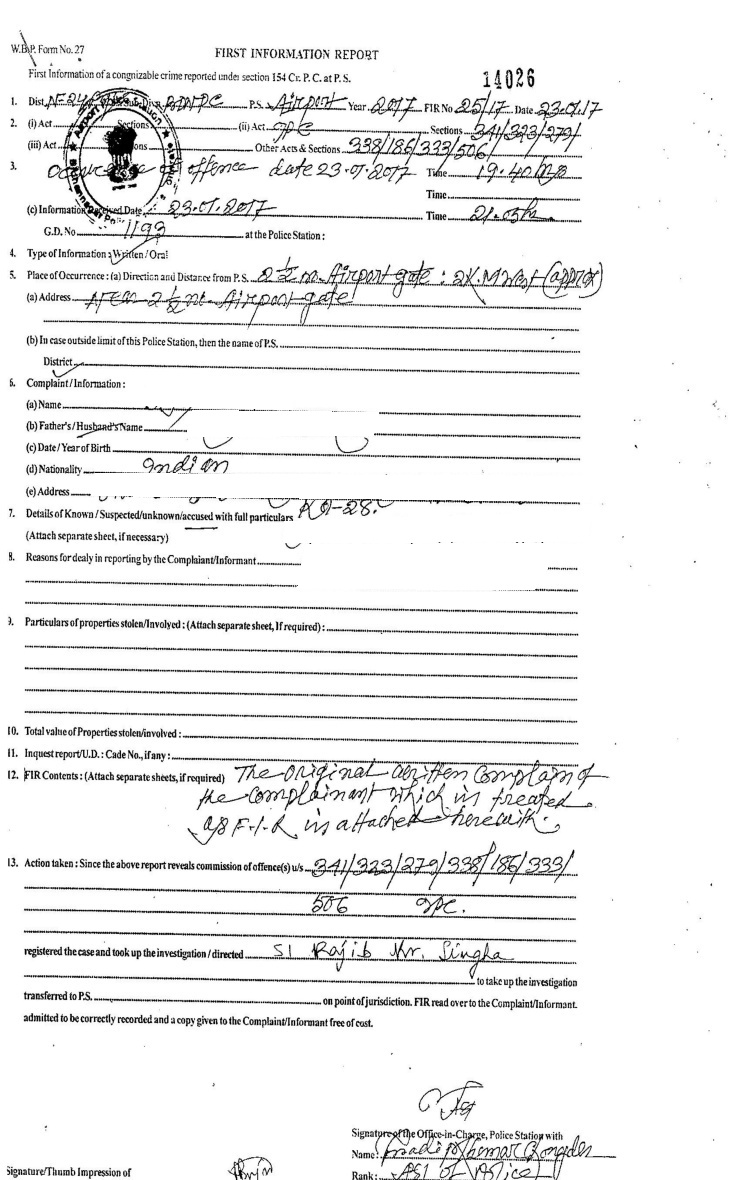 W.B.P. Form No. 27
FIRST INFORMATION REPORT
First Information of a congnizable crime reported under section 154 Cr. P. C. at P. S.
14026
1. Dist. P.S. Airport Year 2017 FIR No 25/17 Date 23.01.17
2. (i) Act Sections (ii) Act IPC Sections 341/323/279/
(iii) Act Other Acts & Sections 338/186/333/506
3. of offence date 23.01.2017 Time 19.40
Time
(c) Information Received Date 23.01.2017 Time 21.05
G.D. No 1193 at the Police Station :
4. Type of Information : Written / Oral
5. Place of Occurrence : (a) Direction and Distance from P.S. 2 1/2 no. Airport gate : 2K.M West (approx)
(a) Address 2 1/2 no. Airport gate
(b) In case outside limit of this Police Station, then the name of P.S.
District
6. Complaint / Information :
(a) Name
(b) Father's / Husband's Name
(c) Date / Year of Birth
(d) Nationality Indian
(e) Address
7. Details of Known / Suspected/unknown/accused with full particulars
(Attach separate sheet, if necessary)
8. Reasons for dealy in reporting by the Complaiant/Informant
9. Particulars of properties stolen/Involved : (Attach separate sheet, If required) :
10. Total value of Properties stolen/involved :
11. Inquest report/U.D. : Cade No., if any :
12. FIR Contents : (Attach separate sheets, if required) The original written complain of
the complainant which is treated
as F.I.R is attached herewith.
13. Action taken : Since the above report reveals commission of offence(s) u/s 341/323/279/338/186/333/
506 IPC.
registered the case and took up the investigation / directed SI Rajib Kr. Singha
to take up the investigation
transferred to P.S. on point of jurisdiction. FIR read over to the Complaint/Informant.
admitted to be correctly recorded and a copy given to the Complaint/Informant free of cost.
Signature of the Office-in-Charge, Police Station with
Name :
Signature/Thumb Impression of
Rank : ASI of Police